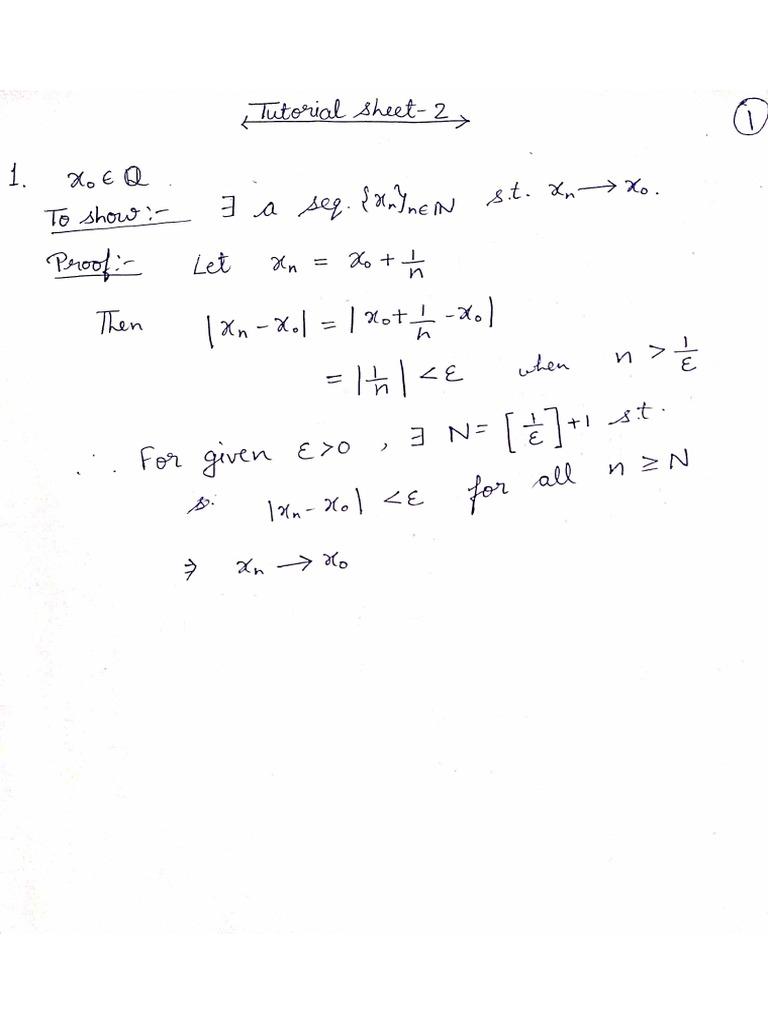 Tutorial sheet-2
①
1. x₀ ∈ ℚ
To show:- ∃ a seq. {xₙ}ₙ∈ℕ s.t. xₙ → x₀.
Proof:- Let xₙ = x₀ + 1/n
Then |xₙ - x₀| = |x₀ + 1/n - x₀|
= |1/n| < ε when n > 1/ε
∴ For given ε > 0, ∃ N = [1/ε] + 1 s.t.
|xₙ - x₀| < ε for all n ≥ N
⇒ xₙ → x₀